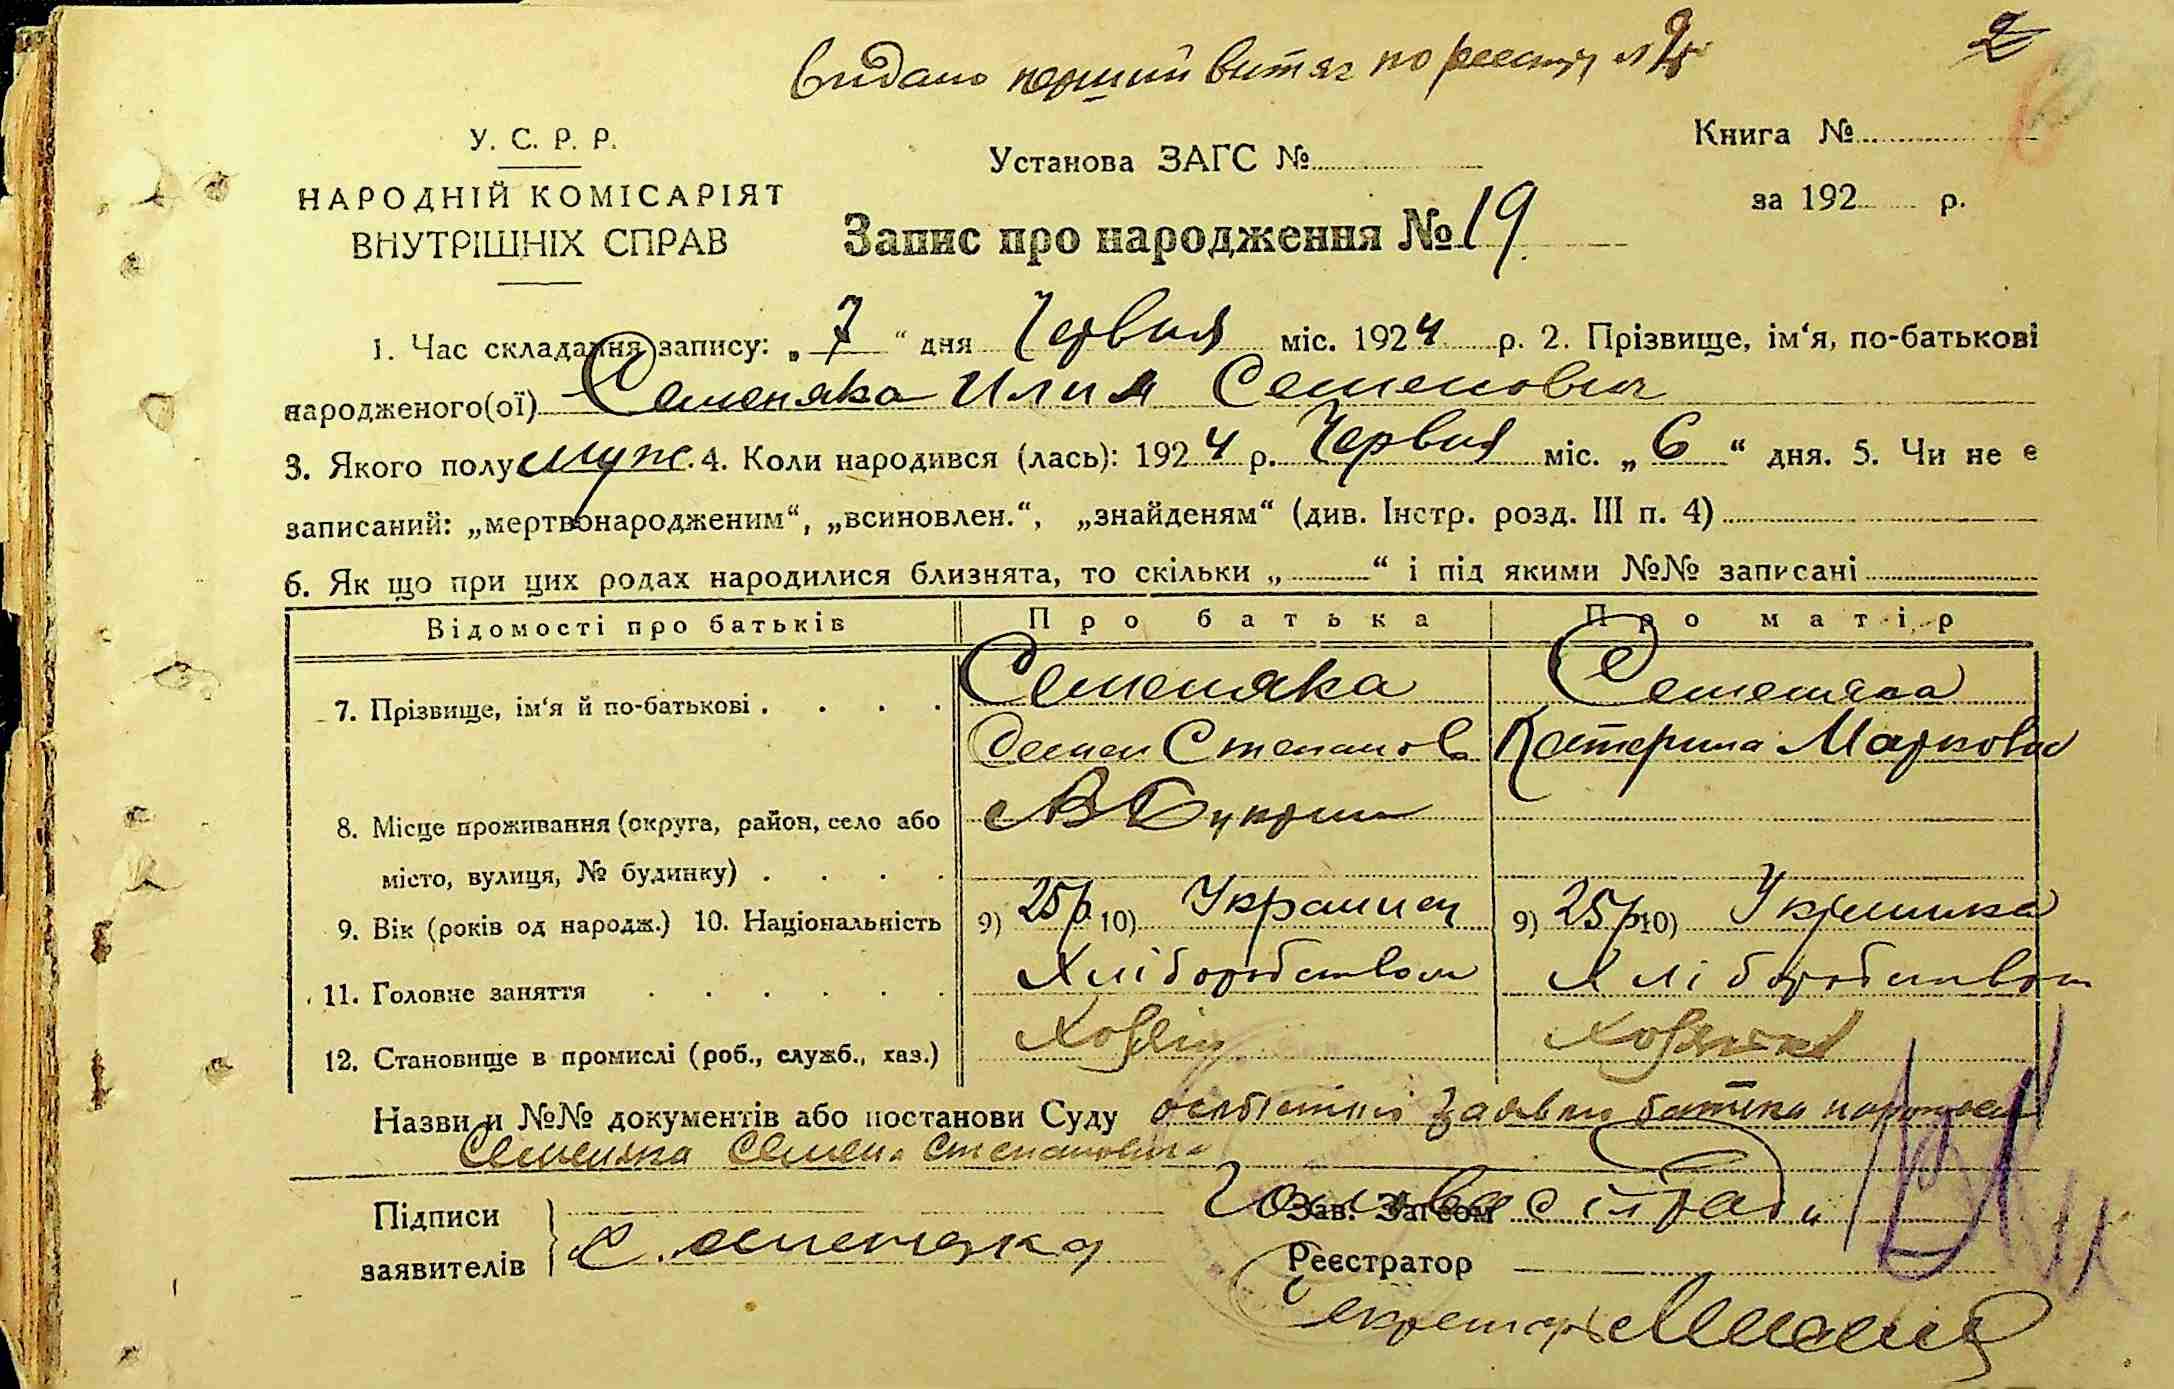 видано перший витяг по реєстру №
2
У. С. Р. Р.
НАРОДНІЙ КОМІСАРІЯТ
ВНУТРІШНІХ СПРАВ
Установа ЗАГС №
Книга №
за 192 р.
Запис про народження № 19
1. Час складання запису: „ 7 “ дня Червня міс. 1924 р. 2. Прізвище, ім‘я, по-батькові
народженого(ої) Семеняка Илия Семенович
3. Якого полу муж. 4. Коли народився (лась): 1924 р. Червня міс. „ 6 “ дня. 5. Чи не є
записаний: „мертвонародженим“, „всиновлен.“, „знайденям“ (див. Інстр. розд. III п. 4)
6. Як що при цих родах народилися близнята, то скільки „ “ і під якими №№ записані
Відомості про батьків Про батька Про матір
7. Прізвище, ім‘я й по-батькові . . . . Семеняка Семеняка
Семен Степанов Катерина Маркова
8. Місце проживання (округа, район, село або
місто, вулиця, № будинку) . . . .
9. Вік (років од народж.) 10. Національність 9) 25 р. 10) Украинец 9) 25 р. 10) Украинка
11. Головне заняття . . . . . . Хліборобством Хліборобством
12. Становище в промислі (роб., служб., хаз.) Хозяін Хозяйка
Назви и №№ документів або постанови Суду особистий заявки батька
Семеняка Семена Степановича
Підписи
заявителів
С. Семеняка
Зав. Загсом
Голова сілради
Реєстратор
Секретарь